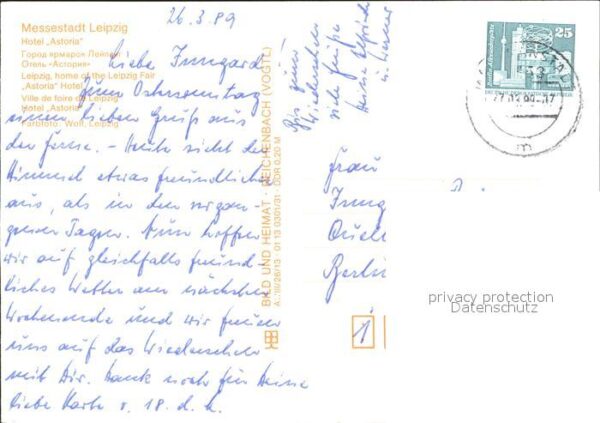 26.3.89
Messestadt Leipzig
Hotel „Astoria"
Город ярмарок Лейпциг
Отель «Астория»
Leipzig, home of the Leipzig Fair
„Astoria" Hotel
Ville de foire de Leipzig
Hotel „Astoria"
Farbfoto: Wolf, Leipzig
Liebe Irmgard!
Zum Ostersonntag
einen lieben Gruß aus
der Ferne. – Heute sieht der
Himmel etwas freundlicher
aus, als in den vergan-
genen Tagen. Nun hoffen
wir auf gleichfalls freund-
liches Wetter am nächsten
Wochenende und wir freuen
uns auf das Wiedersehen
mit Dir. Dank noch für Deine
liebe Karte v. 18. d. M.
Bis zum
Wiedersehen
viele Grüße
Deine
u. Werner
BILD UND HEIMAT · REICHENBACH (VOGTL)
A1/III/26/13 01 13 0301/31 DDR 0,20 M
25
Frau
Irmg
Quel
Berlin
1
privacy protection
Datenschutz